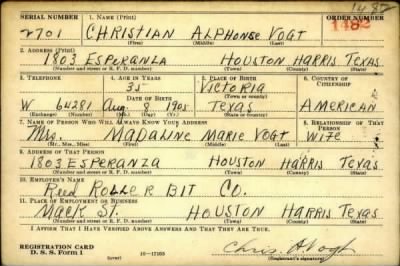 1482
SERIAL NUMBER 1. NAME (Print) ORDER NUMBER
2701 CHRISTIAN ALPHONSE VOGT 1482
(First) (Middle) (Last)
2. ADDRESS (Print)
1803 ESPERANZA HOUSTON HARRIS TEXAS
(Number and street or R. F. D. number) (Town) (County) (State)
3. TELEPHONE 4. AGE IN YEARS 5. PLACE OF BIRTH 6. COUNTRY OF CITIZENSHIP
35 VICTORIA
DATE OF BIRTH (Town or county)
W 64281 Aug 8 1905 TEXAS AMERICAN
(Exchange) (Number) (Mo.) (Day) (Yr.) (State or country)
7. NAME OF PERSON WHO WILL ALWAYS KNOW YOUR ADDRESS 8. RELATIONSHIP OF THAT PERSON
Mrs. MADALINE MARIE VOGT WIFE
(Mr., Mrs., Miss) (First) (Middle) (Last)
9. ADDRESS OF THAT PERSON
1803 ESPERANZA HOUSTON HARRIS TEXAS
(Number and street or R. F. D. number) (Town) (County) (State)
10. EMPLOYER'S NAME
Reed ROLLER BIT CO.
11. PLACE OF EMPLOYMENT OR BUSINESS
MACK ST. HOUSTON HARRIS TEXAS
(Number and street or R. F. D. number) (Town) (County) (State)
I AFFIRM THAT I HAVE VERIFIED ABOVE ANSWERS AND THAT THEY ARE TRUE.
REGISTRATION CARD
D. S. S. Form 1 (over) 16—17105
Chris A Vogt
(Registrant's signature)